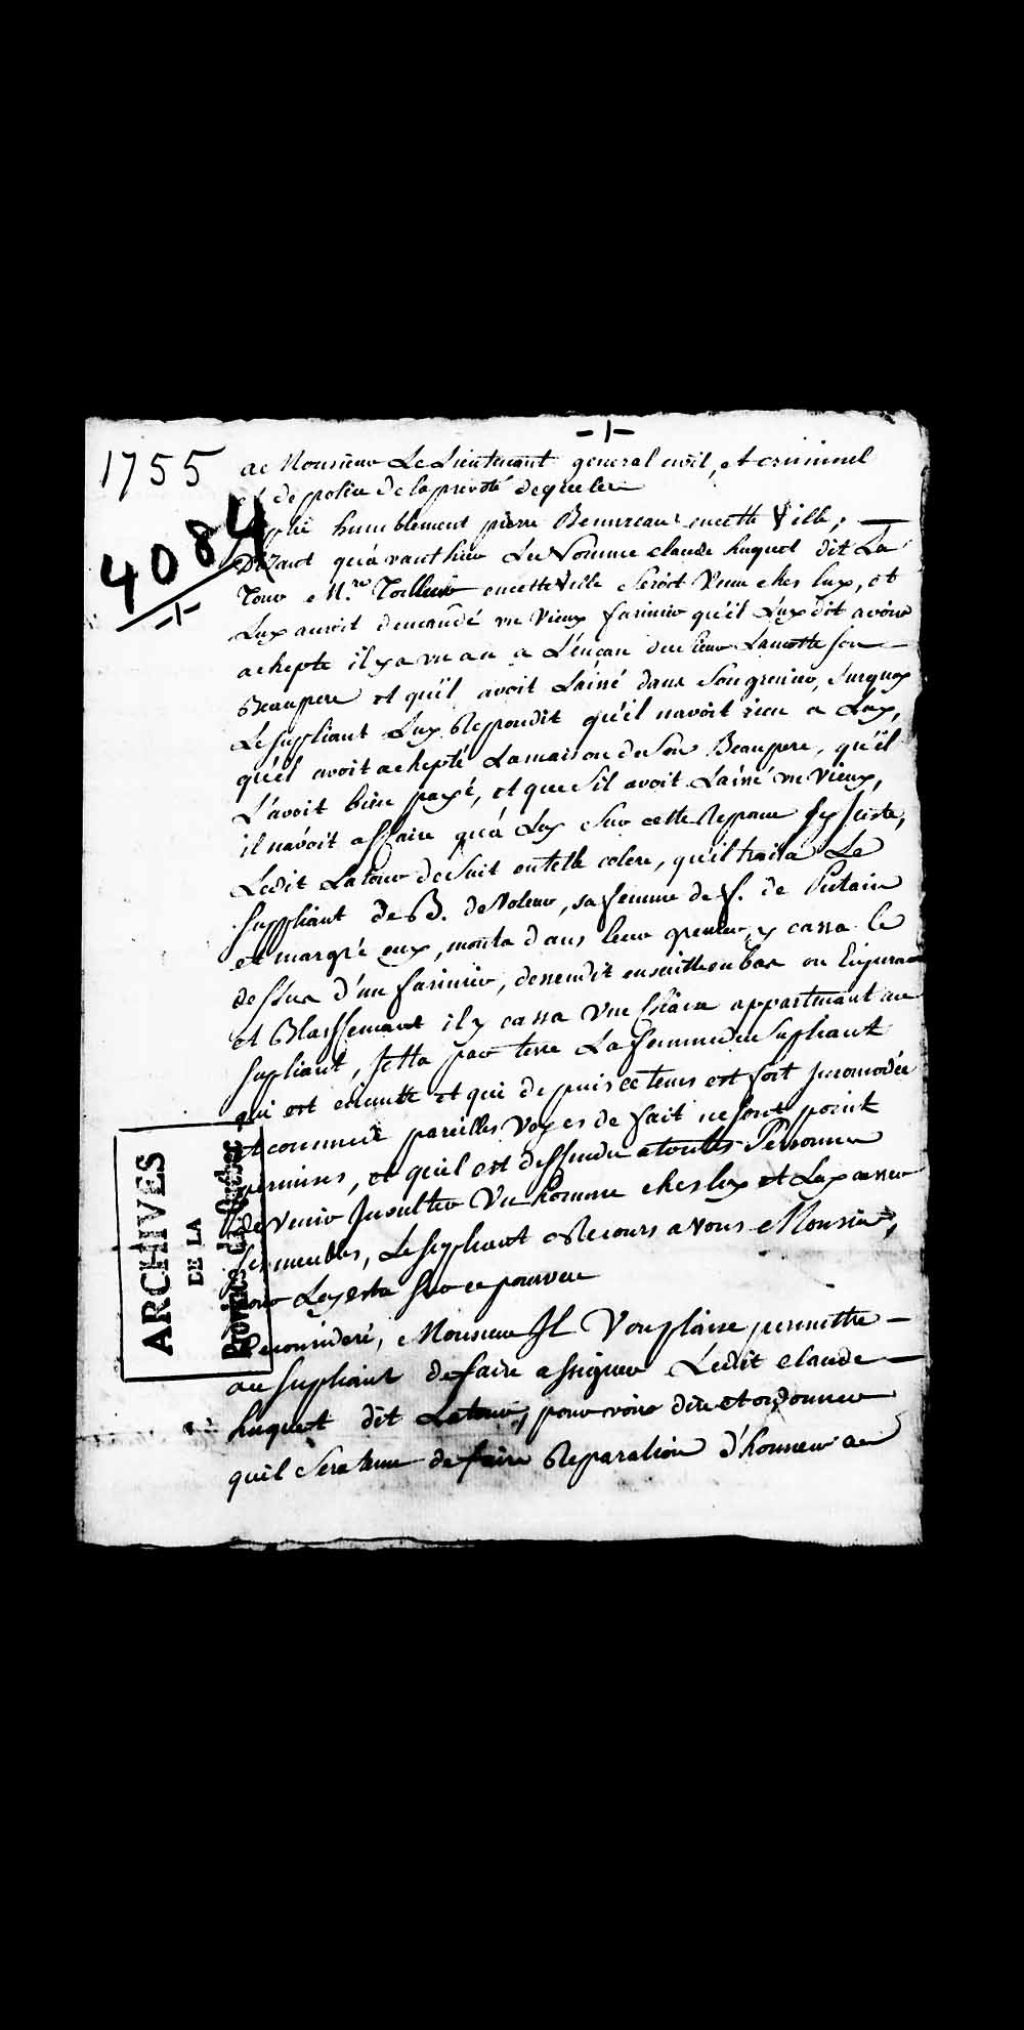 -1-
1755
4084
-1-
a Monsieur Le Lieutenant general civil, et criminel
et de police de la prevoté de quebec
Suplie humblement pierre Beaureau en cette Ville,
Dizant qu'avant hier Le Nommé claude huguet dit La
Tour M.re Tailleur en cette Ville seroit Venu ches luy, et
Luy auroit demandé un Vieux farinier qu'il Luy dit avoir
achepté il y a un an a L'encan du sieur Lamotte son
Beaupere et qu'il avoit Laissé dans son grenier, surquoy
Le supliant Luy Repondit qu'il n'avoit rien a Luy,
qu'il avoit achepté La maison de son Beaupere, qu'il
L'avoit bien payé, et que s'il avoit Laissé un Vieux,
il n'avoit affaire qu'a Luy sur cette Reponce sy juste,
Ledit Latour se mit en telle colere, qu'il traita Le
suppliant de B. de Voleur, sa femme de f. de Putain
et margré eux, monta dans leur grenier, y cassa le
dessus d'un farinier, dessendit ensuitte en bas ou Enjurant
et Blassfemant il y cassa une chaise appartenant au
supliant, Jetta par terre La femme du Supliant
qui est enceinte et qui depuis ce tems est fort Incomodée
et comme de pareilles Voyes de fait ne sont point
permises, et qu'il est deffendu a toutes Personnes
de venir Insulter Un homme ches luy et Luy casser
ses meubles, Le supliant a Recours a vous Monsieur,
pour Luy estre sur ce pourveu
Ce consideré, Monsieur Il Vous plaise permettre
au supliant de faire assigner Ledit claude
huguet dit Latour, pour voir dire et ordonner
quil sera tenu de faire Reparation d'honneur au
ARCHIVES
DE LA
Province de Québec